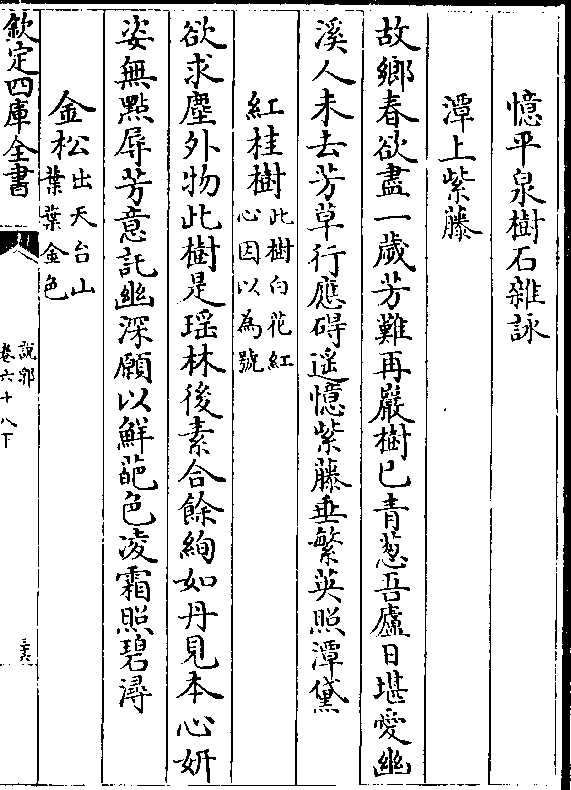 憶平泉樹石雜詠
潭上紫藤
故鄉春欲盡一歲芳難再巖樹已青葱吾廬日堪愛幽
溪人未去芳草行應碍遥憶紫藤垂繁英照潭黛
紅桂樹
此樹白花紅
心因以為號
欲求塵外物此樹是瑶林後素合餘絢如丹見本心妍
姿無點辱芳意託幽深願以鮮葩色凌霜照碧潯
金松
出天台山
葉葉金色
欽定四庫全書
說郛
卷六十八下
三六